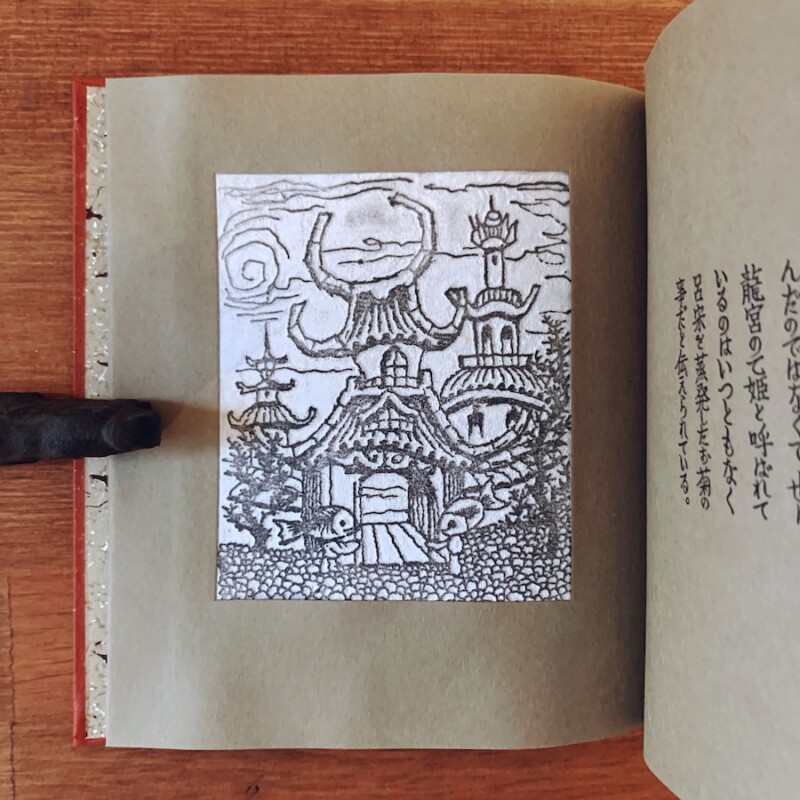 んだのではなくて、せ
龍宮の乙姫と呼ばれて
いるのはいつともなく
呂宋を蒸発したお菊の
事だと伝えられている。